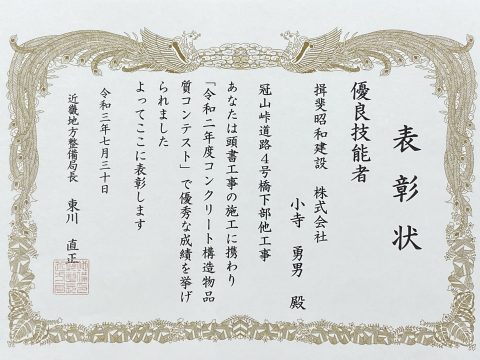 表彰状
優良技能者
揖斐昭和建設 株式会社
小寺 勇男 殿
冠山峠道路4号橋下部他工事
あなたは頭書工事の施工に携わり
「令和二年度コンクリート構造物品
質コンテスト」で優秀な成績を挙げ
られました
よってここに表彰します
令和三年七月三十日
近畿地方整備局長 東川 直正